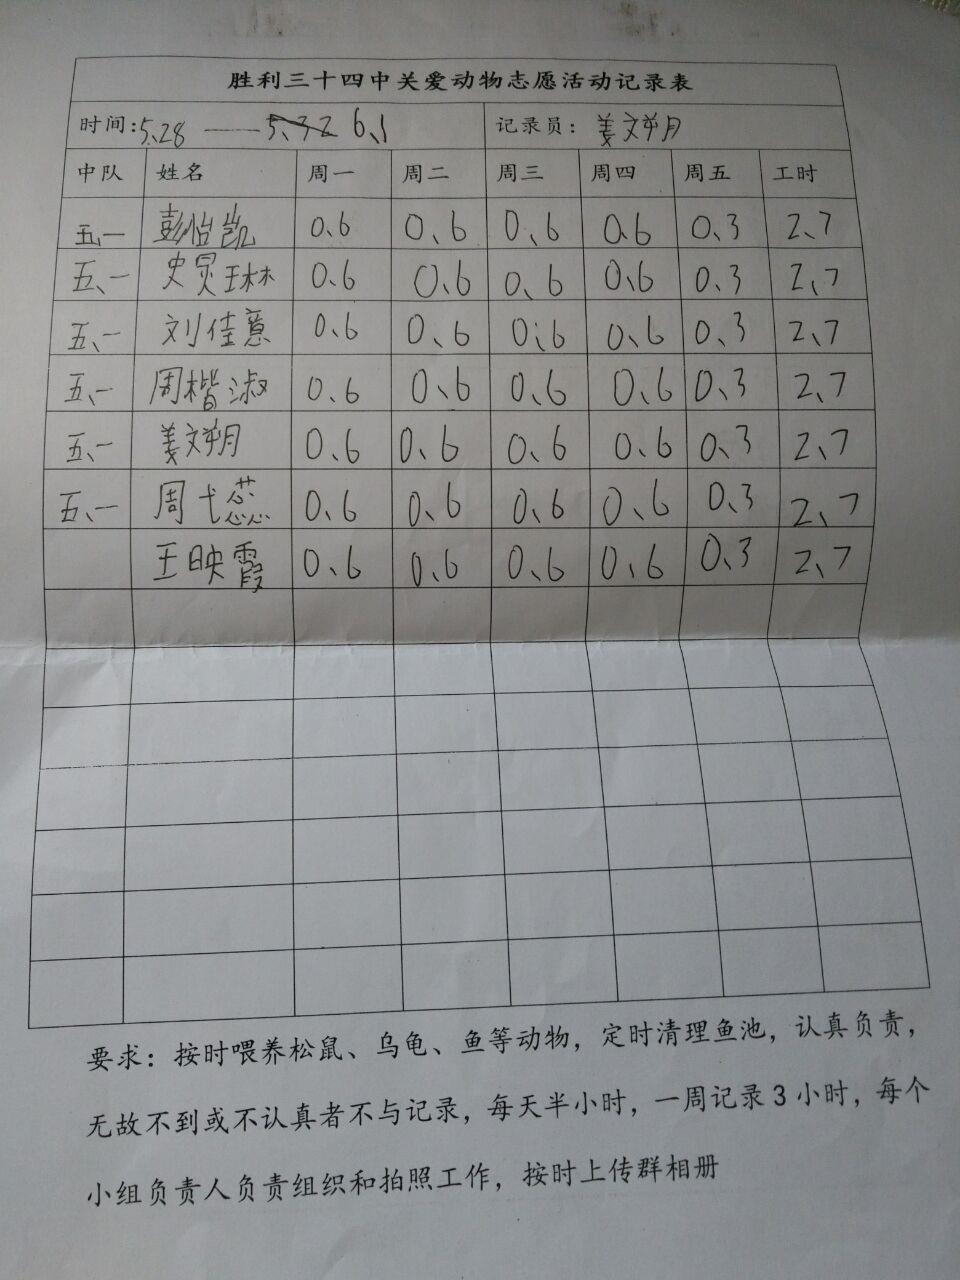 胜利三十四中关爱动物志愿活动记录表
时间:5、28 —— 5、32 6、1 记录员: 姜文朔月
中队 姓名 周一 周二 周三 周四 周五 工时
五、一 彭怡凯 0.6 0、6 0、6 0.6 0、3 2、7
五、一 史 琳 0.6 0.6 0、6 0.6 0、3 2、7
五、一 刘佳意 0.6 0、6 0、6 0、6 0、3 2、7
五、一 周楷淑 0、6 0、6 0、6 0、6 0、3 2、7
五、一 姜文朔月 0、6 0、6 0、6 0、6 0、3 2、7
五、一 周弋蕊 0、6 0、6 0、6 0、6 0、3 2、7
王映霞 0、6 0、6 0、6 0、6 0、3 2、7
要求：按时喂养松鼠、乌龟、鱼等动物，定时清理鱼池，认真负责，
无故不到或不认真者不与记录，每天半小时，一周记录3小时，每个
小组负责人负责组织和拍照工作，按时上传群相册